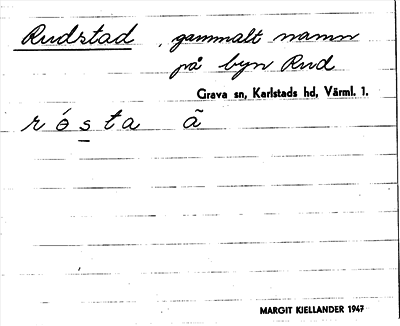 Rudstad, gammalt namn
på byn Rud
Grava sn, Karlstads hd, Värml. l.
rósta ã
MARGIT KIELLANDER 1947